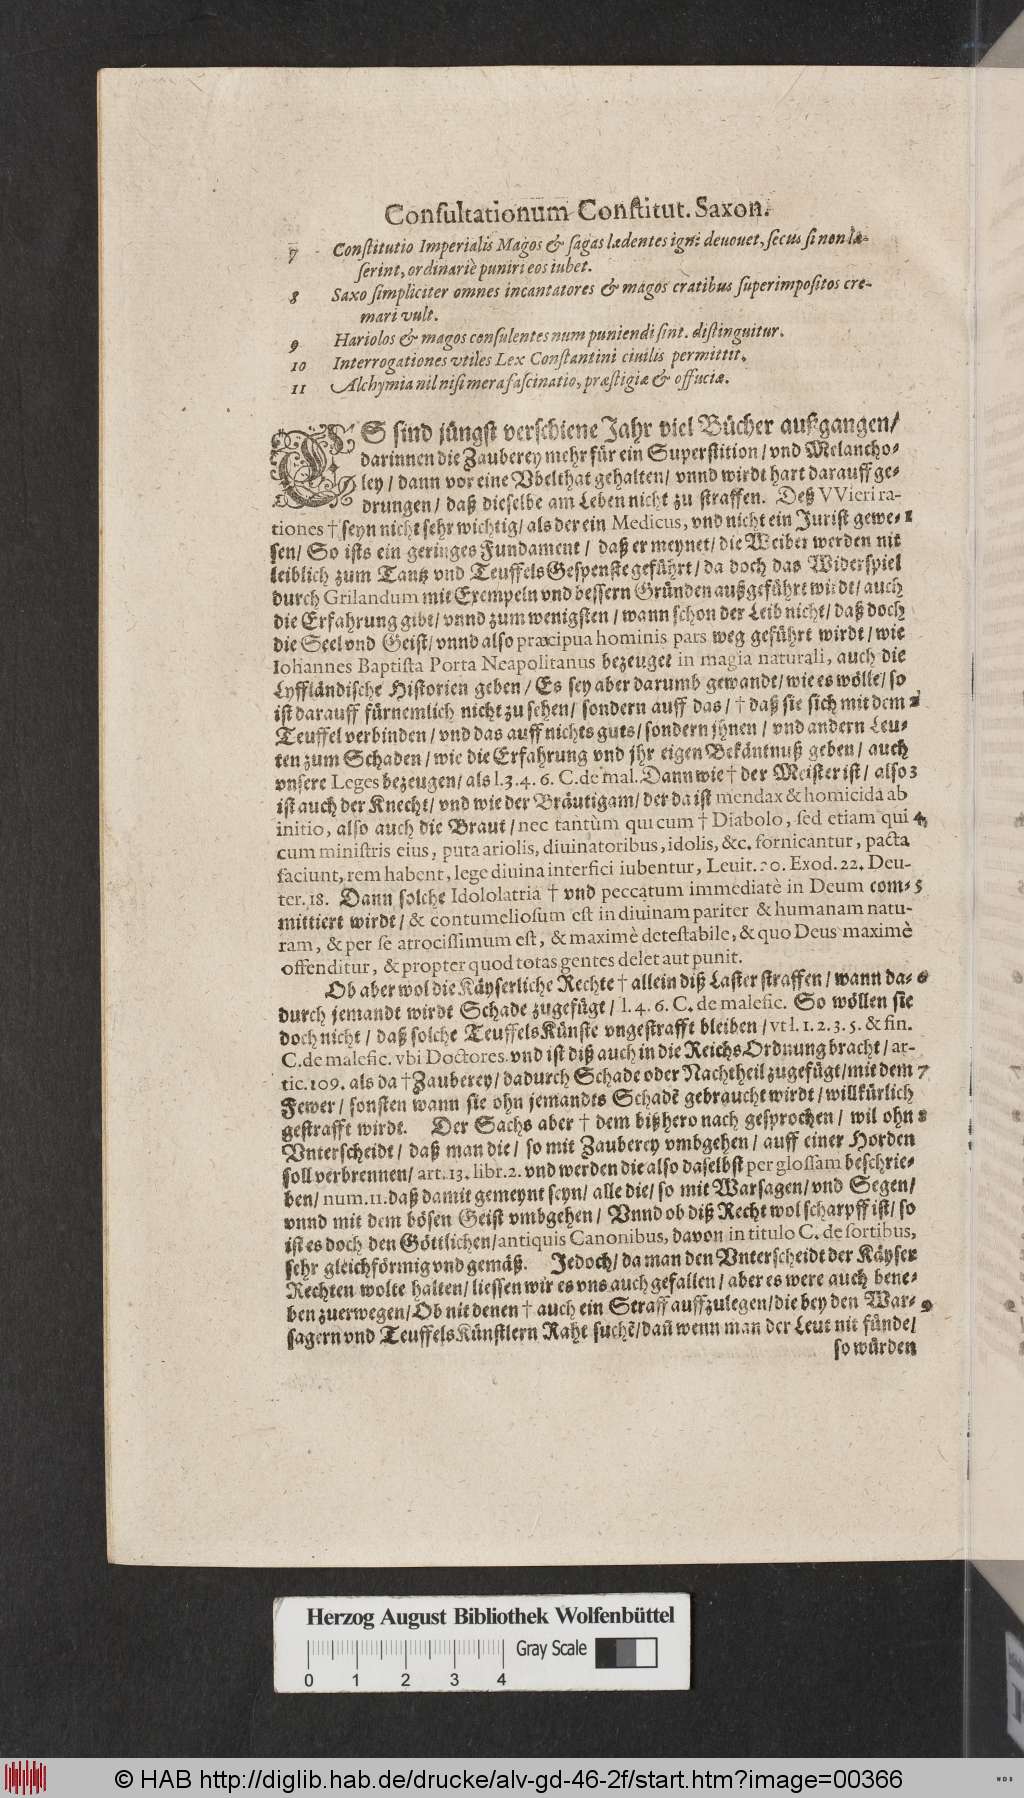 Consultationum Constitut. Saxon.
7 Constitutio Imperialis Magos & sagas lædentes igni deuouet, secus si non læ-
serint, ordinariè puniri eos iubet.
8 Saxo simpliciter omnes incantatores & magos cratibus superimpositos cre-
mari vult.
9 Hariolos & magos consulentes num puniendi sint. distinguitur.
10 Interrogationes vtiles Lex Constantini ciuilis permittit.
11 Alchymia nil nisi mera fascinatio, præstigiæ & offuciæ.
ES sind jüngst verschiene Jahr viel Bücher außgangen/
darinnen die Zauberey mehr für ein Superstition/ vnd Melancho-
ley/ dann vor eine Vbelthat gehalten/ vnnd wirdt hart darauff ge-
drungen/ daß dieselbe am Leben nicht zu straffen. Deß VVieri ra-
tiones † seyn nicht sehr wichtig/ als der ein Medicus, vnd nicht ein Jurist gewe- 1
sen/ So ists ein geringes Fundament/ daß er meynet/ die Weiber werden nit
leiblich zum Tantz vnd Teuffels Gespenste geführt/ da doch das Widerspiel
durch Grilandum mit Exempeln vnd bessern Gründen außgeführt wirdt/ auch
die Erfahrung gibt/ vnnd zum wenigsten/ wann schon der Leib nicht/ daß doch
die Seel vnd Geist/ vnnd also præcipua hominis pars weg geführt wirdt/ wie
Iohannes Baptista Porta Neapolitanus bezeuget in magia naturali, auch die
Lyffländische Historien geben/ Es sey aber darumb gewandt/ wie es wölle/ so
ist darauff fürnemlich nicht zu sehen/ sondern auff das/ † daß sie sich mit dem 2
Teuffel verbinden/ vnd das auff nichts guts/ sondern jhnen/ vnd andern Leu-
ten zum Schaden/ wie die Erfahrung vnd jhr eigen Bekäntnuß geben/ auch
vnsere Leges bezeugen/ als l. 3. 4. 6. C. de mal. Dann wie † der Meister ist/ also 3
ist auch der Knecht/ vnd wie der Bräutigam/ der da ist mendax & homicida ab
initio, also auch die Braut/ nec tantùm qui cum † Diabolo, sed etiam qui 4
cum ministris eius, puta ariolis, diuinatoribus, idolis, &c. fornicantur, pacta
faciunt, rem habent, lege diuina interfici iubentur, Leuit. 20. Exod. 22. Deu-
ter. 18. Dann solche Idololatria † vnd peccatum immediatè in Deum com- 5
mittiert wirdt/ & contumeliosum est in diuinam pariter & humanam natu-
ram, & per se atrocissimum est, & maximè detestabile, & quo Deus maximè
offenditur, & propter quod totas gentes delet aut punit.
Ob aber wol die Käyserliche Rechte † allein diß Laster straffen/ wann da- 6
durch jemandt wirdt Schade zugefügt/ l. 4. 6. C. de malefic. So wöllen sie
doch nicht/ daß solche Teuffels Künste vngestrafft bleiben/ vt l. 1. 2. 3. 5. & fin.
C. de malefic. vbi Doctores. vnd ist diß auch in die Reichs Ordnung bracht/ ar-
tic. 109. als da † Zauberey/ dadurch Schade oder Nachtheil zugefügt/ mit dem 7
Fewer/ sonsten wann sie ohn jemandts Schadē gebraucht wirdt/ willkürlich
gestrafft wirdt. Der Sachs aber † dem bißhero nach gesprochen/ wil ohn 8
Vnterscheidt/ daß man die/ so mit Zauberey vmbgehen/ auff einer Horden
soll verbrennen/ art. 13. libr. 2. vnd werden die also daselbst per glossam beschrie-
ben/ num. 11. daß damit gemeynt seyn/ alle die/ so mit Warsagen/ vnd Segen/
vnnd mit dem bösen Geist vmbgehen/ Vnnd ob diß Recht wol scharpff ist/ so
ist es doch den Göttlichen/ antiquis Canonibus, davon in titulo C. de sortibus,
sehr gleichförmig vnd gemäß. Jedoch/ da man den Vnterscheidt der Käyser
Rechten wolte halten/ liessen wir es vns auch gefallen/ aber es were auch bene-
ben zuerwegen/ Ob nit denen † auch ein Straff auffzulegen/ die bey den War- 9
sagern vnd Teuffels Künstlern Raht suchē/ dañ wenn man der Leut nit fünde/
so würden
Herzog August Bibliothek Wolfenbüttel
Gray Scale
0 1 2 3 4
© HAB http://diglib.hab.de/drucke/alv-gd-46-2f/start.htm?image=00366